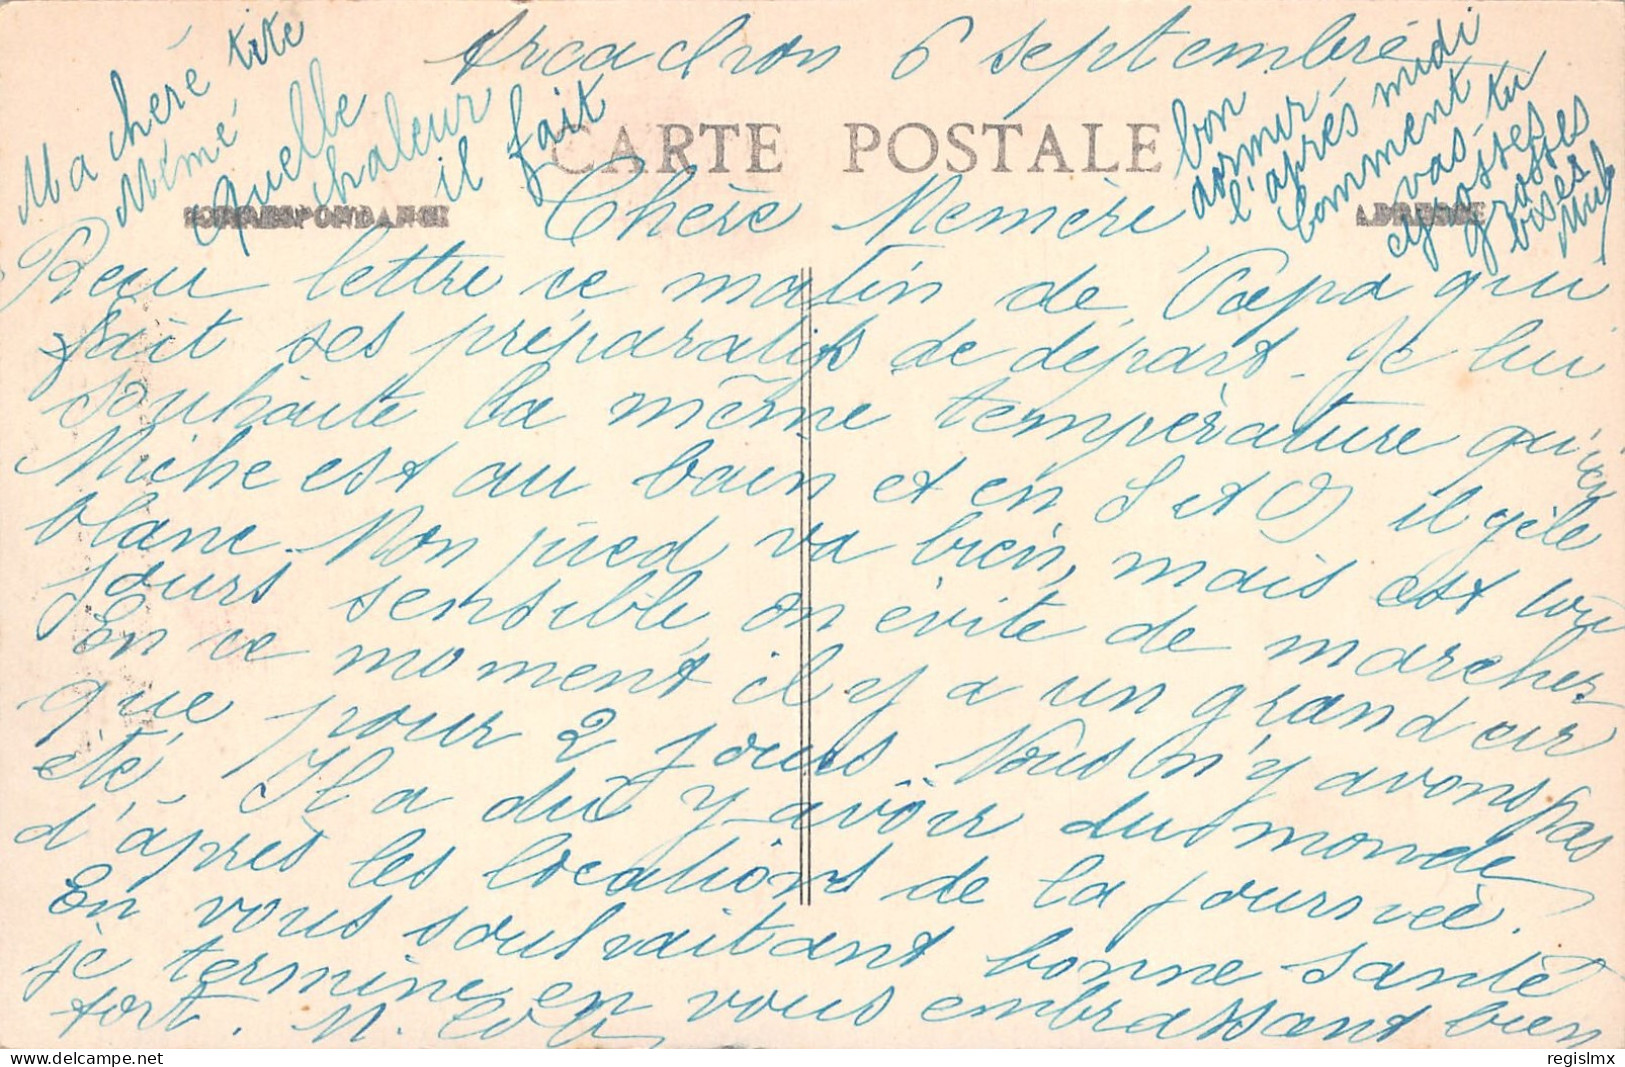 Arcachon 6 septembre
Ma cheré tite
Mémé
Quelle
chaleur
il fait
bon
dormir
l'après midi
Comment
vas-tu
grosses grosses
bises
Mich
CARTE POSTALE
CORRESPONDANCE
ADRESSE
Chère Mémère,
Reçu lettre ce matin de Papa qui
fait ses préparatifs de départ. Je lui
souhaite la même température qu'ici
Miche est au bain et en S et O il gèle
blanc. Mon pied va bien, mais est tou
jours sensible, on évite de marcher
En ce moment il y a un grand air
que pour 2 jours. Nous n'y avons pas
été. Il a dû y avoir du monde
d'après les locations de la journée.
En vous souhaitant bonne santé
je termine en vous embrassant bien
fort. M.
regislmx